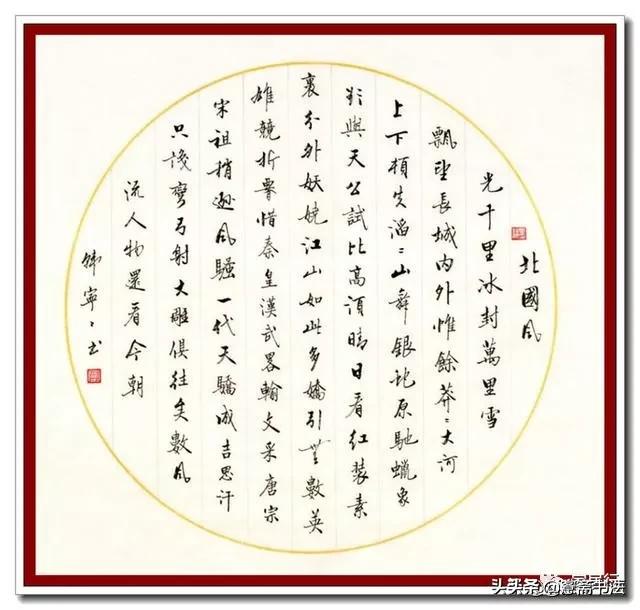 北國風
光千里冰封萬里雪
飄望長城內外惟餘莽〻大河
上下頓失滔〻山舞銀蛇原馳蠟象
欲與天公試比高須晴日看紅裝素
裹分外妖嬈江山如此多嬌引無數英
雄競折腰惜秦皇漢武畧輸文采唐宗
宋祖稍遜風騷一代天驕成吉思汗
只識彎弓射大雕俱往矣數風
流人物還看今朝
韓寧〻書
头条@斋书法